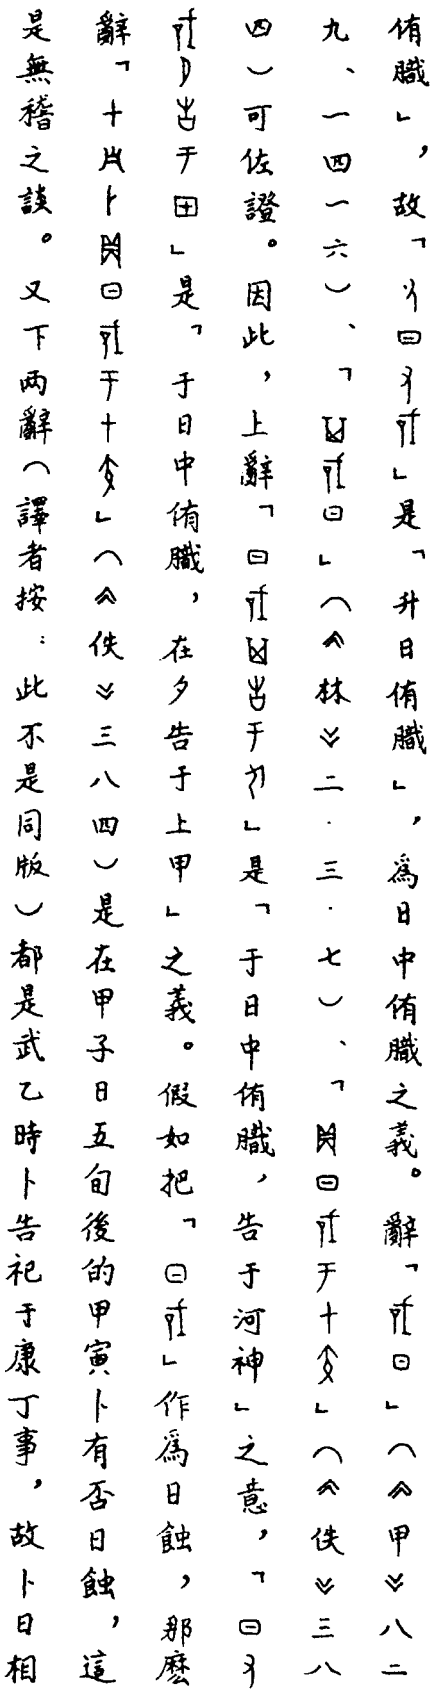 侑職」，故「日」是「升日侑職」，爲日中侑職之義。辭「日」（《甲》八二
九、一四一六）、「日」（《林》二·三·七）、「日于十」（《佚》三八
四）可佐證。因此，上辭「日于」是「于日中侑職，告于河神」之意，「日
于田」是「于日中侑職，在夕告于上甲」之義。假如把「日」作爲日蝕，那麽
辭「十卜日于十」（《佚》三八四）是在甲子日五旬後的甲寅卜有否日蝕，這
是無稽之談。又下两辭（譯者按：此不是同版）都是武乙時卜告祀于康丁事，故卜日相